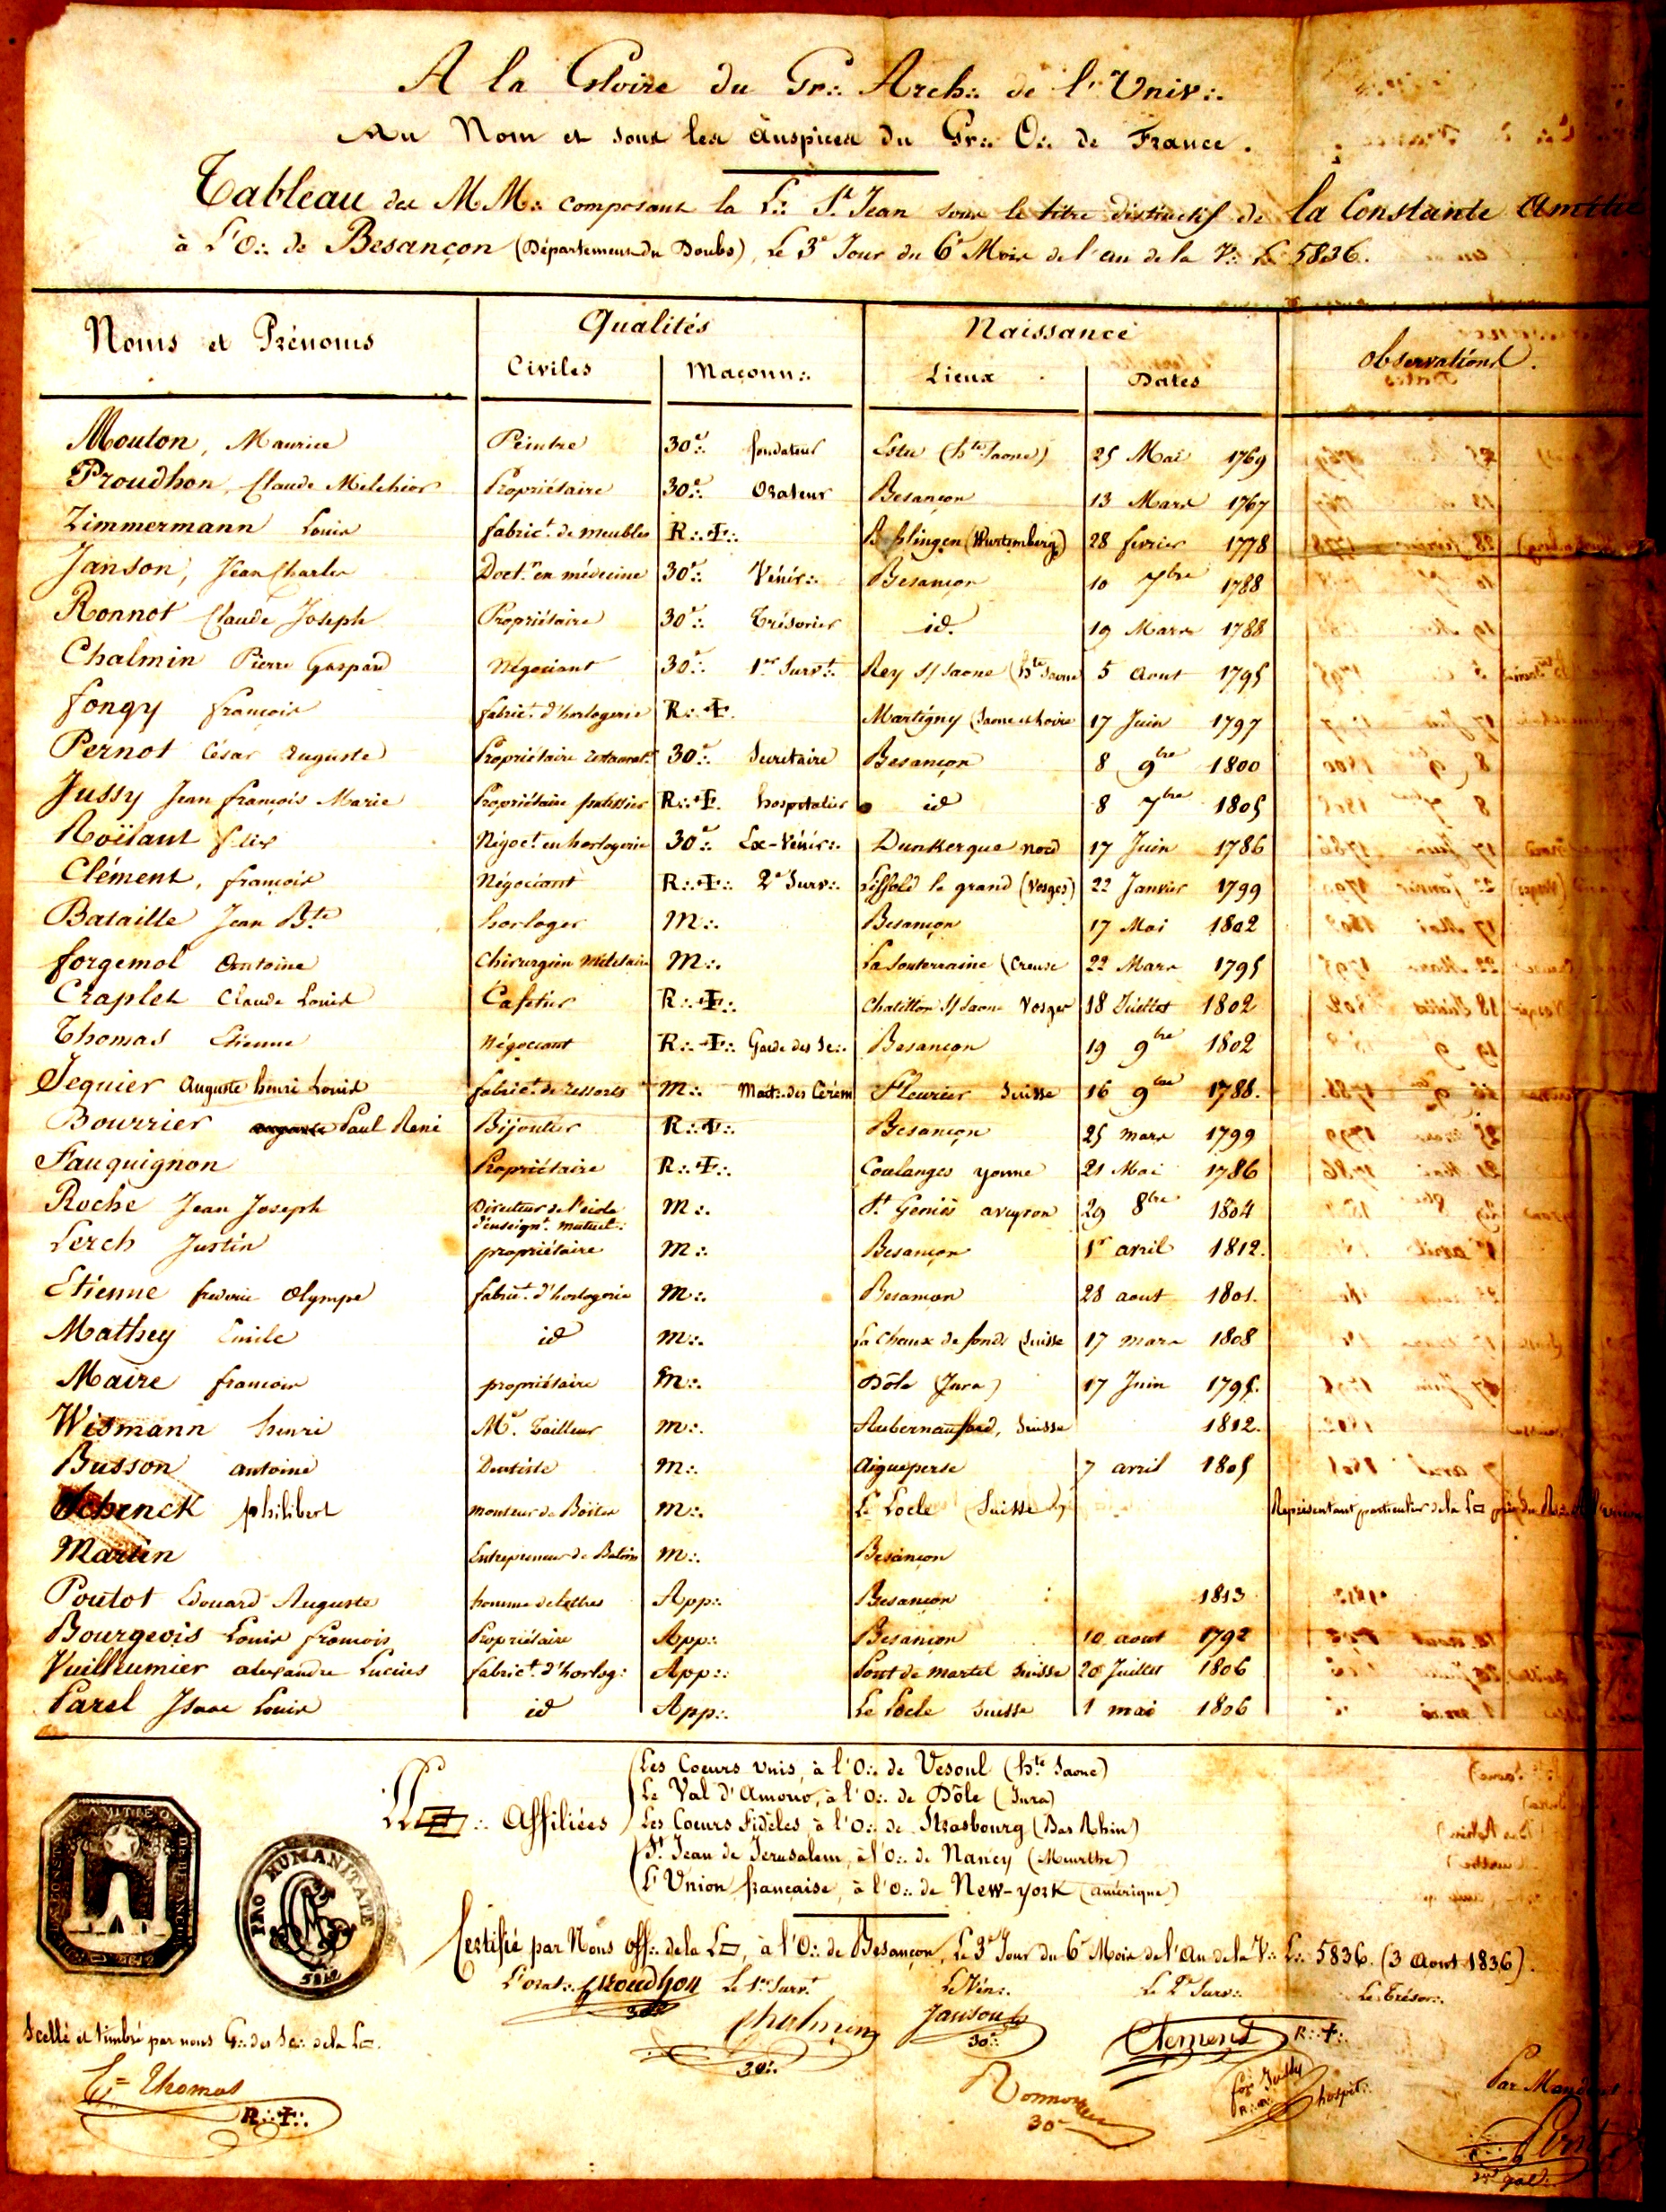 A la Gloire du Gr∴ Arch∴ de l'Univ∴
Au Nom et sous les auspices du Gr∴ O∴ de France.
Tableau des MM∴ composant la L∴ St Jean sous le titre distinctif de la Constante Amitié
à l'O∴ de Besançon (Département du Doubs), Le 3e Jour du 6e Mois de l'an de la V∴ L∴ 5836.
Noms et Prénoms Qualités Naissance Observations.
Civiles Maçonn∴ Lieux Dates
Mouton, Maurice Peintre 30e∴ fondateur (hte Saone) 25 Mai 1769
Proudhon, Claude Melchior Propriétaire 30e∴ Orateur Besançon 13 Mars 1767
Zimmermann Louis fabrict de meubles R∴✠∴ (Wurtemberg) 28 fevrier 1778
Janson, Jean Charles Doct.r en médecine 30e∴ Vénér∴ Besançon 10 7bre 1788
Ronnot Claude Joseph Propriétaire 30e∴ Trésorier id. 19 Mars 1788
Chalmin Pierre Gaspard Négociant 30e∴ 1er Survt∴ Rey s/ Saone (hte Saone 5 Aout 1795
fongy françois fabrict d'horlogerie R∴✠. Martigny (Saone et Loire 17 Juin 1797
Pernot César Auguste Propriétaire restaurat. 30e∴ Secretaire Besançon 8 9bre 1800
Jussy Jean françois Marie Propriétaire patissier R∴✠. hospitalier id 8 7bre 1805
Roïtant felix Négoct en horlogerie 30e∴ Ex-Vénér∴ Dunkerque nord 17 Juin 1786
Clément, françois Négociant R∴✠∴ 2e Surv∴ Liffold le grand (Vosges) 22 Janvier 1799
Bataille Jean Bte horloger M∴ Besançon 17 Mai 1802
forgemol Antoine Chirurgien Militaire M∴ La Souterraine (Creuse 22 Mars 1795
Craplet Claude Louis Cafetier R∴✠∴ Chatillon s/ Saone Vosges 18 Juillet 1802
Thomas Etienne Négociant R∴✠∴ Garde des Sc∴ Besancon 19 9bre 1802
Jequier Auguste henri Louis fabrict de ressorts M∴ Mait∴ des Cérém Fleurier Suisse 16 9bre 1788.
Bourrier Paul René Bijoutier R∴✠∴ Besançon 25 mars 1799
Fauquignon Propriétaire R∴✠∴ Coulanges yonne 21 Mai 1786
Roche Jean Joseph Directeur de l'école M∴ St Geniès aveyron 29 8bre 1804
d'enseignt. mutuel∴
Lerch Justin propriétaire M∴ Besançon 1er avril 1812.
Etienne frederic Olympe fabrict. d'horlogerie M∴ Besancon 28 aout 1801.
Mathey Emile id M∴ La Chaux de fonds Suisse 17 mars 1808
Maire françois propriétaire M∴ Dôle (Jura) 17 Juin 1795.
Wismann henri Me. Tailleur M∴ Suisse 1812.
Busson antoine Dentiste M∴ Aigueperse 7 avril 1805
Schenck philibert monteur de Boites M∴ Le Locle (Suisse) Représentant particulier de la L▭ près du
Martin Entrepreneur de Batims M∴ Besançon
Poutot Edouard Auguste homme de lettres App∴ Besançon 1813
Bourgeois Louis françois Propriétaire App∴ Besançon 10 aout 1792
Vuilleumier alexandre Lucius fabrict. d'horlog: App∴ Pont de martel Suisse 20 Juillet 1806
Parel Isaac Louis id App∴ Le Locle Suisse 1 mai 1806
LL▭∴ Affiliées
Les Coeurs unis, à l'O∴ de Vesoul (hte Saone)
Le Val d'Amour, à l'O∴ de Dôle (Jura)
Les Coeurs Fidèles, à l'O∴ de Strasbourg (Bas Rhin)
St Jean de Jerusalem, à l'O∴ de Nancy (Meurthe)
L'Union française, à l'O∴ de New-york (amérique)
PRO HUMANITATE
5812
Certifié par Nous Off∴ de la L▭, à l'O∴ de Besançon, Le 3e Jour du 6e Mois de l'An de la V∴ L∴ 5836. (3 Aout 1836).
L'Orat∴ Proudhon Le 1er Survt Le Vén∴ Le 2e Surv∴ Le Trésor∴
30e Chalmin Janson Clément R∴✠∴
30e∴ 30e∴
Scellé et timbré par nous G∴ des Sc∴ de la L▭.
Et= Thomas
R∴✠∴
Ronnot
30e
fois Jussy
hospit∴
Par Mandement